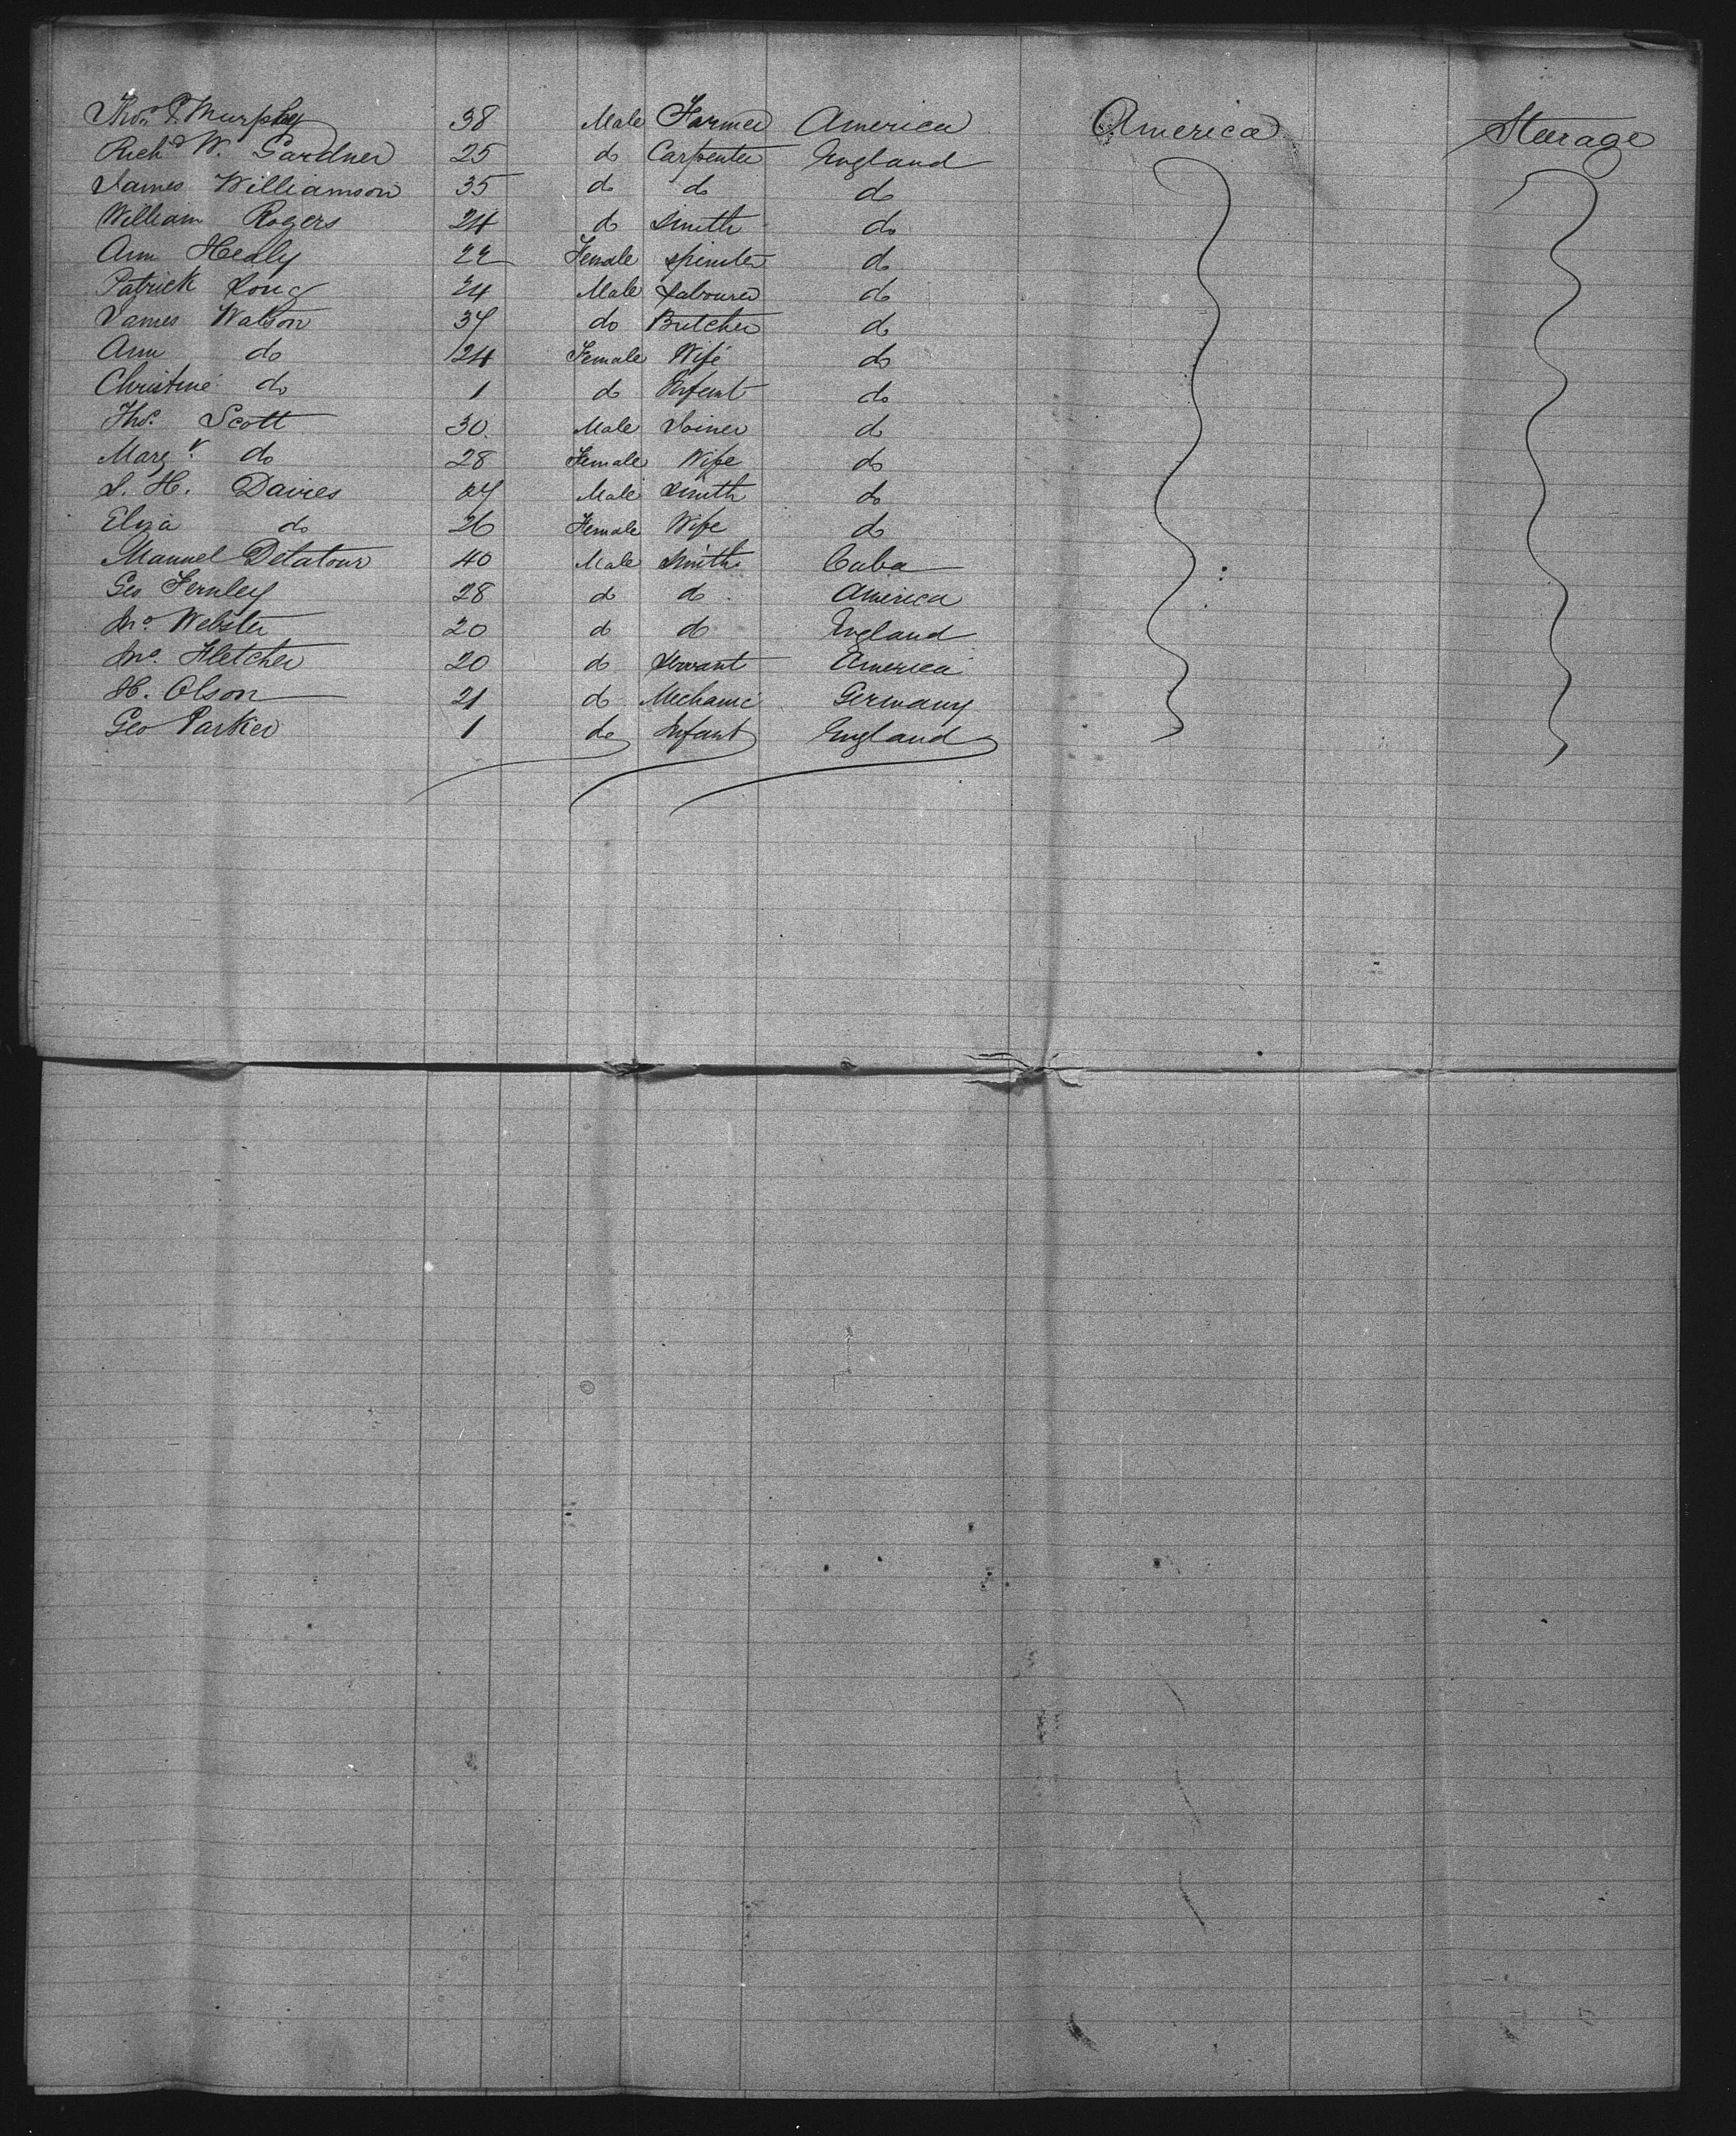 Thos P Murphy 38 Male Farmer America America Steerage
Richd W. Gardner 25 do Carpenter England
James Williamson 35 do do do
William Rogers 24 do Smith do
Ann Healy 22 Female Spinster do
Patrick Long 24 Male Labourer do
James Watson 37 do Butcher do
Ann do 24 Female Wife do
Christine do 1 do Infant do
Thos. Scott 30 Male Joiner do
Margt. do 28 Female Wife do
S. H. Davies 27 Male Smith do
Eliza do 26 Female Wife do
Manuel Delatour 40 Male Smith Cuba
Geo Fernley 28 do do America
Jno. Webster 20 do do England
Jno. Fletcher 20 do Servant America
H. Olson 21 do Mechanic Germany
Geo Parker 1 do Infant England